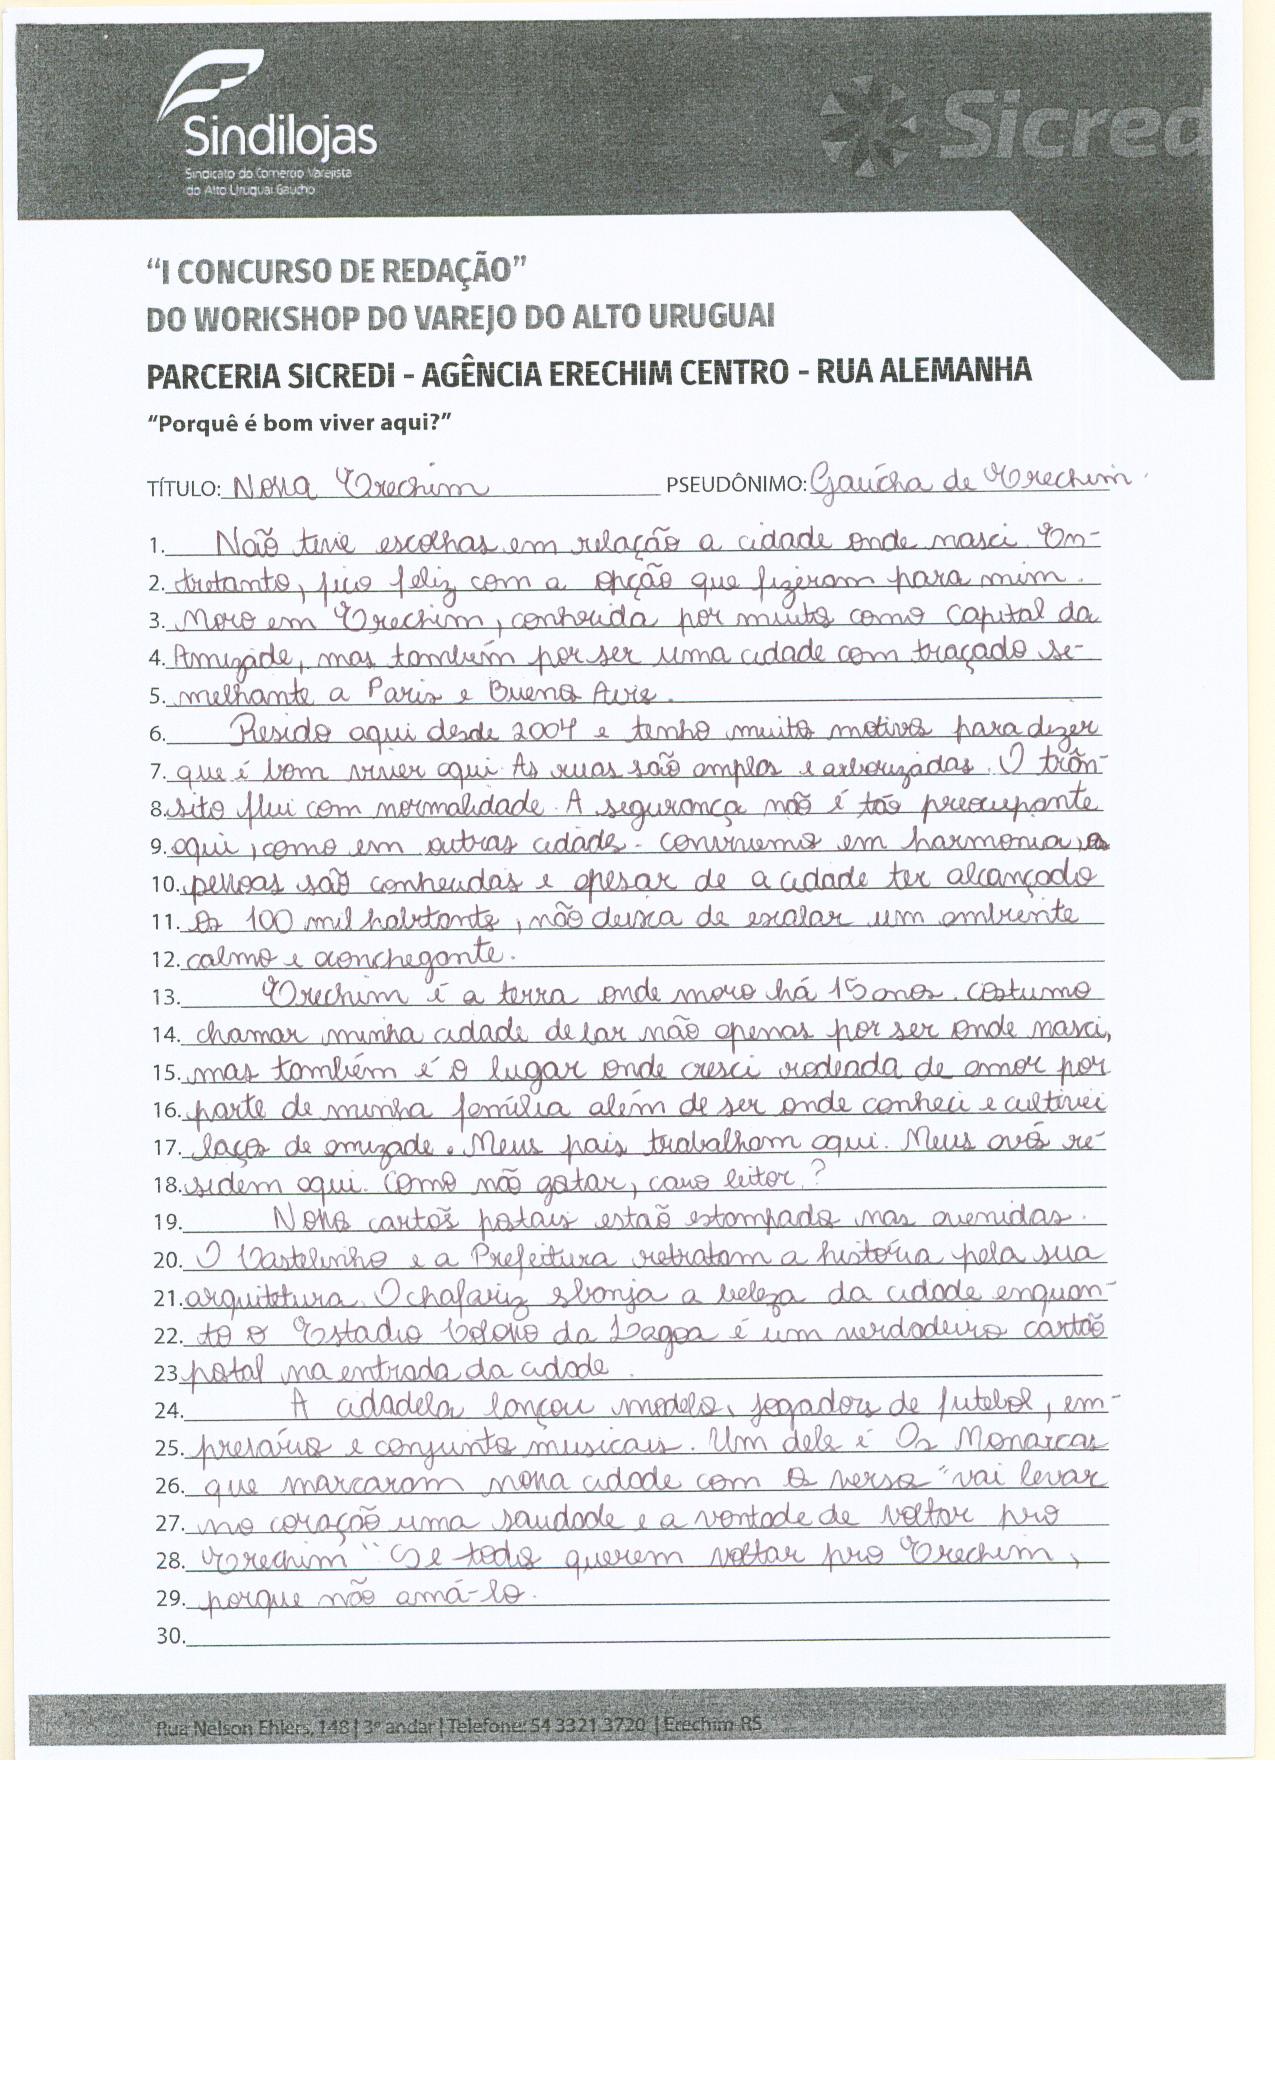 Sindilojas
Sindicato do Comércio Varejista
do Alto Uruguai Gaúcho
Sicred
“I CONCURSO DE REDAÇÃO”
DO WORKSHOP DO VAREJO DO ALTO URUGUAI
PARCERIA SICREDI - AGÊNCIA ERECHIM CENTRO - RUA ALEMANHA
“Porquê é bom viver aqui?”
TÍTULO: Nossa Erechim PSEUDÔNIMO: Gaúcha de Erechim
1. Não tive escolhas em relação a cidade onde nasci. En-
2. tretanto, fico feliz com a opção que fizeram para mim.
3. Moro em Erechim, conhecida por muitos como Capital da
4. Amizade, mas também por ser uma cidade com traçado se-
5. melhante a Paris e Buenos Aires.
6. Resido aqui desde 2004 e tenho muitos motivos para dizer
7. que é bom viver aqui. As ruas são amplas e arborizadas. O trân-
8. sito flui com normalidade. A segurança não é tão preocupante
9. aqui, como em outras cidades. Convivemos em harmonia, as
10. pessoas são conhecidas e apesar de a cidade ter alcançado
11. os 100 mil habitantes, não deixa de exalar um ambiente
12. calmo e aconchegante.
13. Erechim é a terra onde moro há 15 anos. Costumo
14. chamar minha cidade de lar não apenas por ser onde nasci,
15. mas também é o lugar onde cresci rodeada de amor por
16. parte de minha família além de ser onde conheci e cultivei
17. laços de amizade. Meus pais trabalham aqui. Meus avós re-
18. sidem aqui. Como não gostar, caro leitor?
19. Nossos cartões postais estão estampados nas avenidas.
20. O Castelinho e a Prefeitura retratam a história pela sua
21. arquitetura. O chafariz esbanja a beleza da cidade enquan-
22. to o Estadio Colosso da Lagoa é um verdadeiro cartão
23. postal na entrada da cidade.
24. A cidadela lançou modelos, jogadores de futebol, em-
25. presários e conjuntos musicais. Um deles é Os Monarcas
26. que marcaram nossa cidade com os versos “vai levar
27. no coração uma saudade e a vontade de voltar pro
28. Erechim” Se todos querem voltar pro Erechim,
29. porque não amá-lo.
30.
Rua Nelson Ehlers, 148 | 3º andar | Telefone: 54 3321 3720 | Erechim-RS